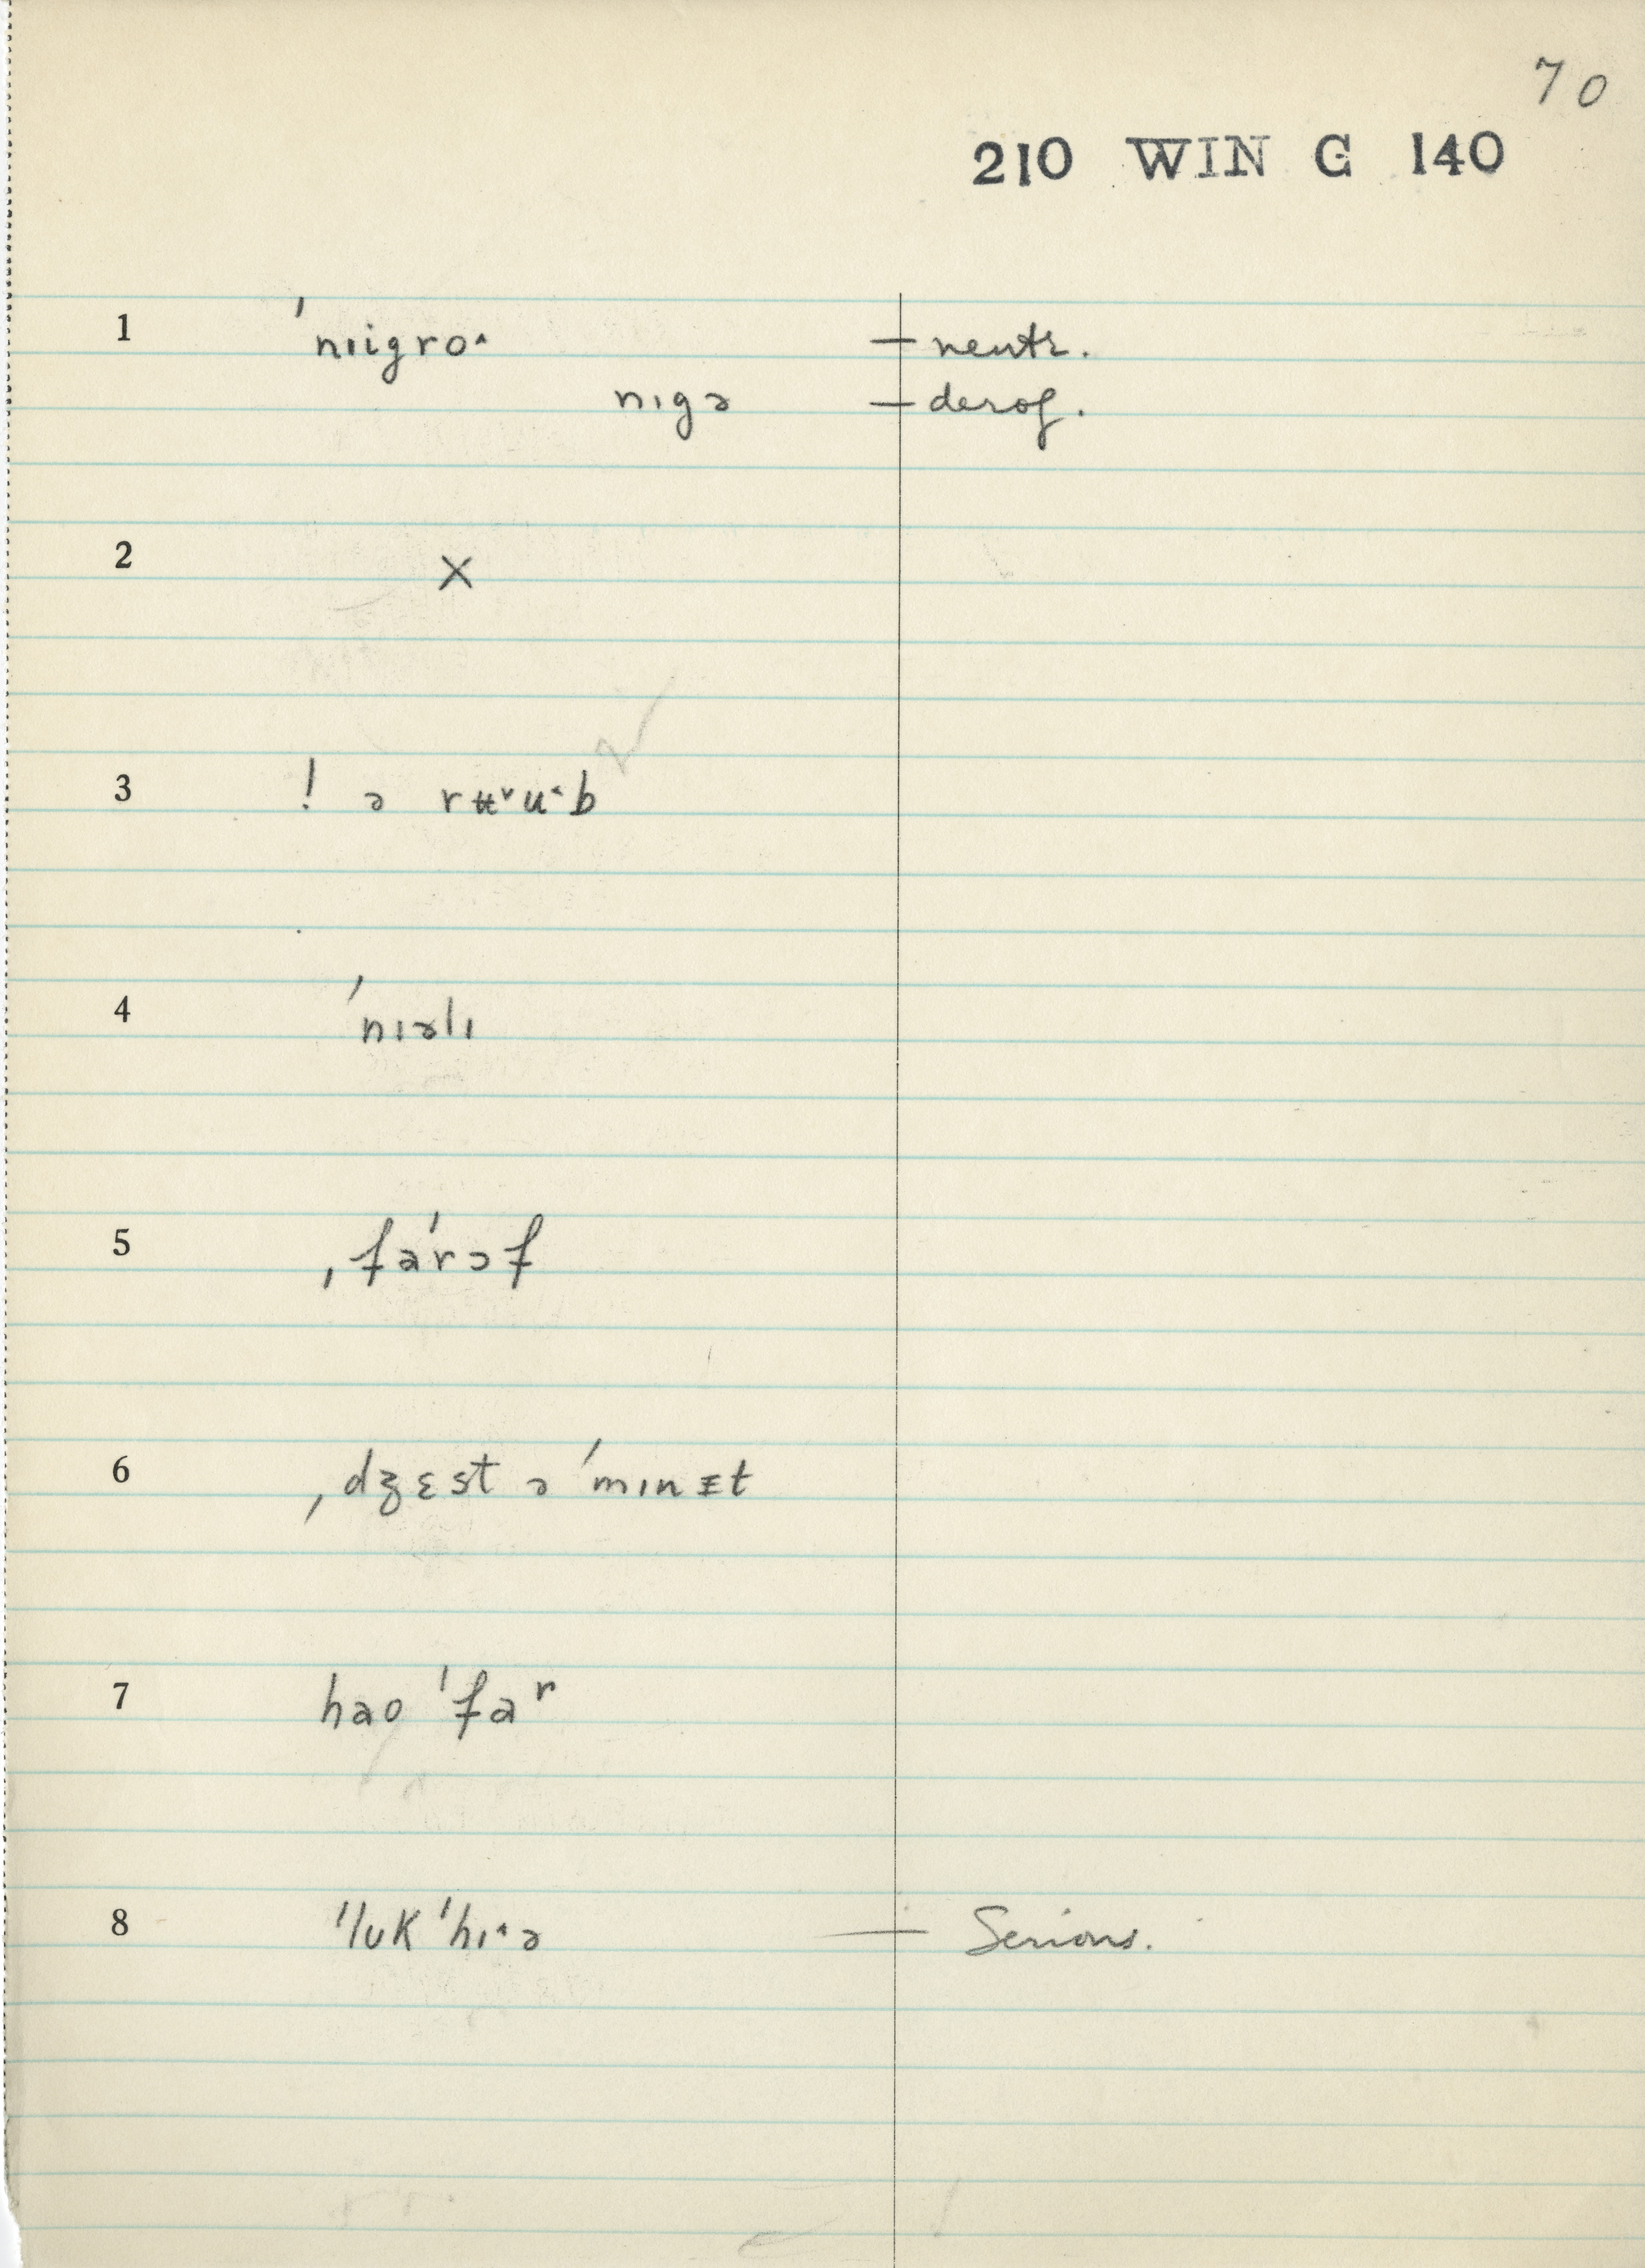 70
210 WIN G 140
1 ˈnɪigro˄ — neutr.
nɪgə — derog.
2 X
3 ! ə rʉ˅u˂b
4 ˈnɪəlɪ
5 ˌfaˈrɔf
6 ˌdʒɛst ə ˈmɪnᵻt
7 hao ˈfaʳ
8 ˈlʊk ˈhɪ˄ə — Serious.